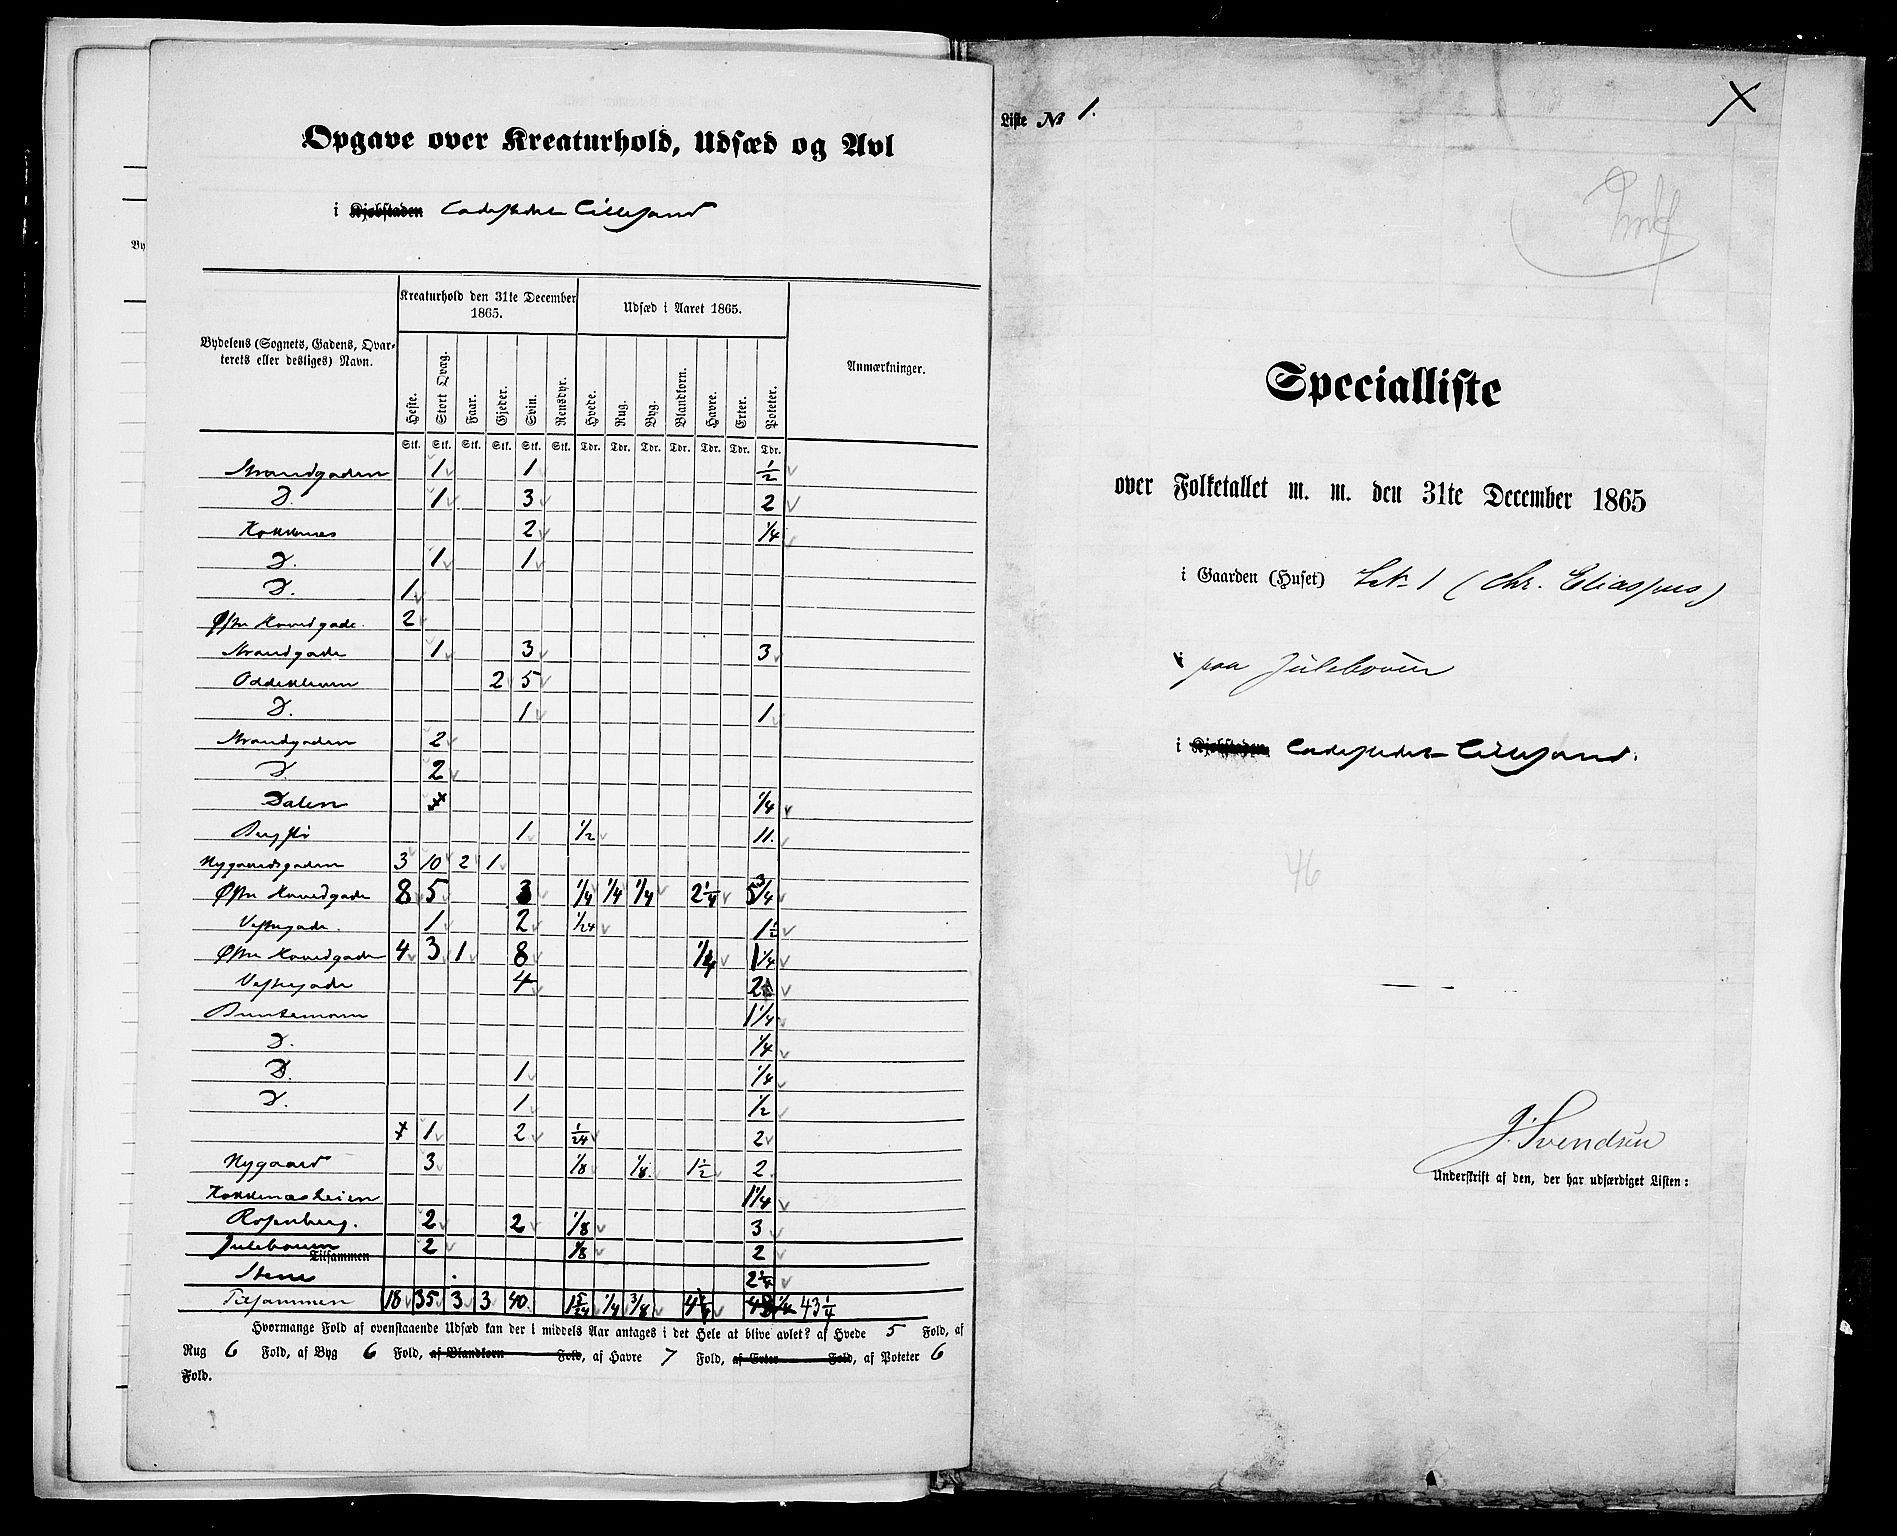 Opgave over Kreaturhold, Udsæd og Avl
i Kjøbstaden Ladestedet Lillesand
Bydelens (Sognets, Gadens, Qvarterets eller desliges) Navn.
Kreaturhold den 31te December 1865.
Udsæd i Aaret 1865.
Anmærkninger.
Heste. Stort Qvæg. Faar. Gjeder. Svin. Rensdyr. Hvede. Rug. Byg. Blandkorn. Havre. Erter. Poteter.
Stk. Stk. Stk. Stk. Stk. Stk. Tdr. Tdr. Tdr. Tdr. Tdr. Tdr. Tdr.
Strandgaden 1 1 1/2
D. 1 3 2
Kokkenes 2 1/4
D. 1 1
D. 1
Østre Hovedgade. 2
Strandgade 1 3 3
Oddekleven 2 5
D. 1 1
Strandgaden 2
D 2
Dalen 1/4
Bergsli 1 1/2 11.
Nygaardsgaden 3 10 2 1
Østre Hovedgade 8 5 3 1/4 1/4 1/4 2 1/4 5 3/4
Vestregade. 1 2 1/24 1 1/2
Østre Hovedgade 4 3 1 8 1/4 1 1/4
Vestregade 4 2
1 1/4
D. 1/4
D. 1 1/4
D. 1 1/2
1 2 1/24 2
Nygaard 3 1/8 1/8. 1 1/2 2.
Kokkenesheien 1 1/4
Rosenberg. 2 2 1/8 3
Julebouen 2 1/8 2
Tilsammen
Stene 2 1/4
Tilsammen 18 35 3 3 40. 1 5/24 1/4 3/8 4 1/4 43 1/4
Hvormange Fold af ovenstaaende Udsæd kan der i middels Aar antages i det Hele at blive avlet? af Hvede 5 Fold, af
Rug 6 Fold, af Byg 6 Fold, af Blandkorn Fold, af Havre 7 Fold, af Erter Fold, af Poteter 6
Fold.
Liste № 1.
X
Specialliste
over Folketallet m. m. den 31te December 1865
i Gaarden (Huset) 1 (Chr. Eliassens)
i paa Julebouen
i Kjøbstaden Ladestedet Lillesand.
46
J. Svendsen
Underskrift af den, der har udfærdiget Listen: